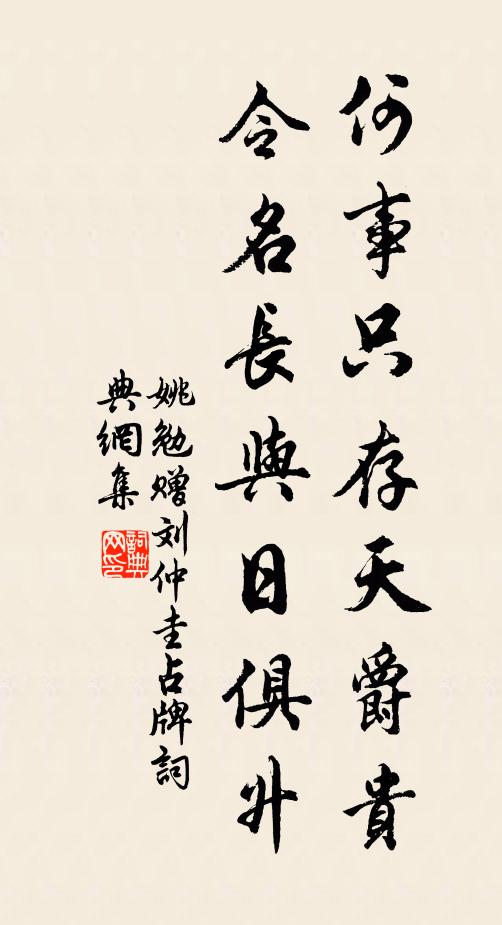 何事只存天爵貴
令名長與日俱升
姚勉赠刘仲圭占牌詞
典網集
詞典
网印